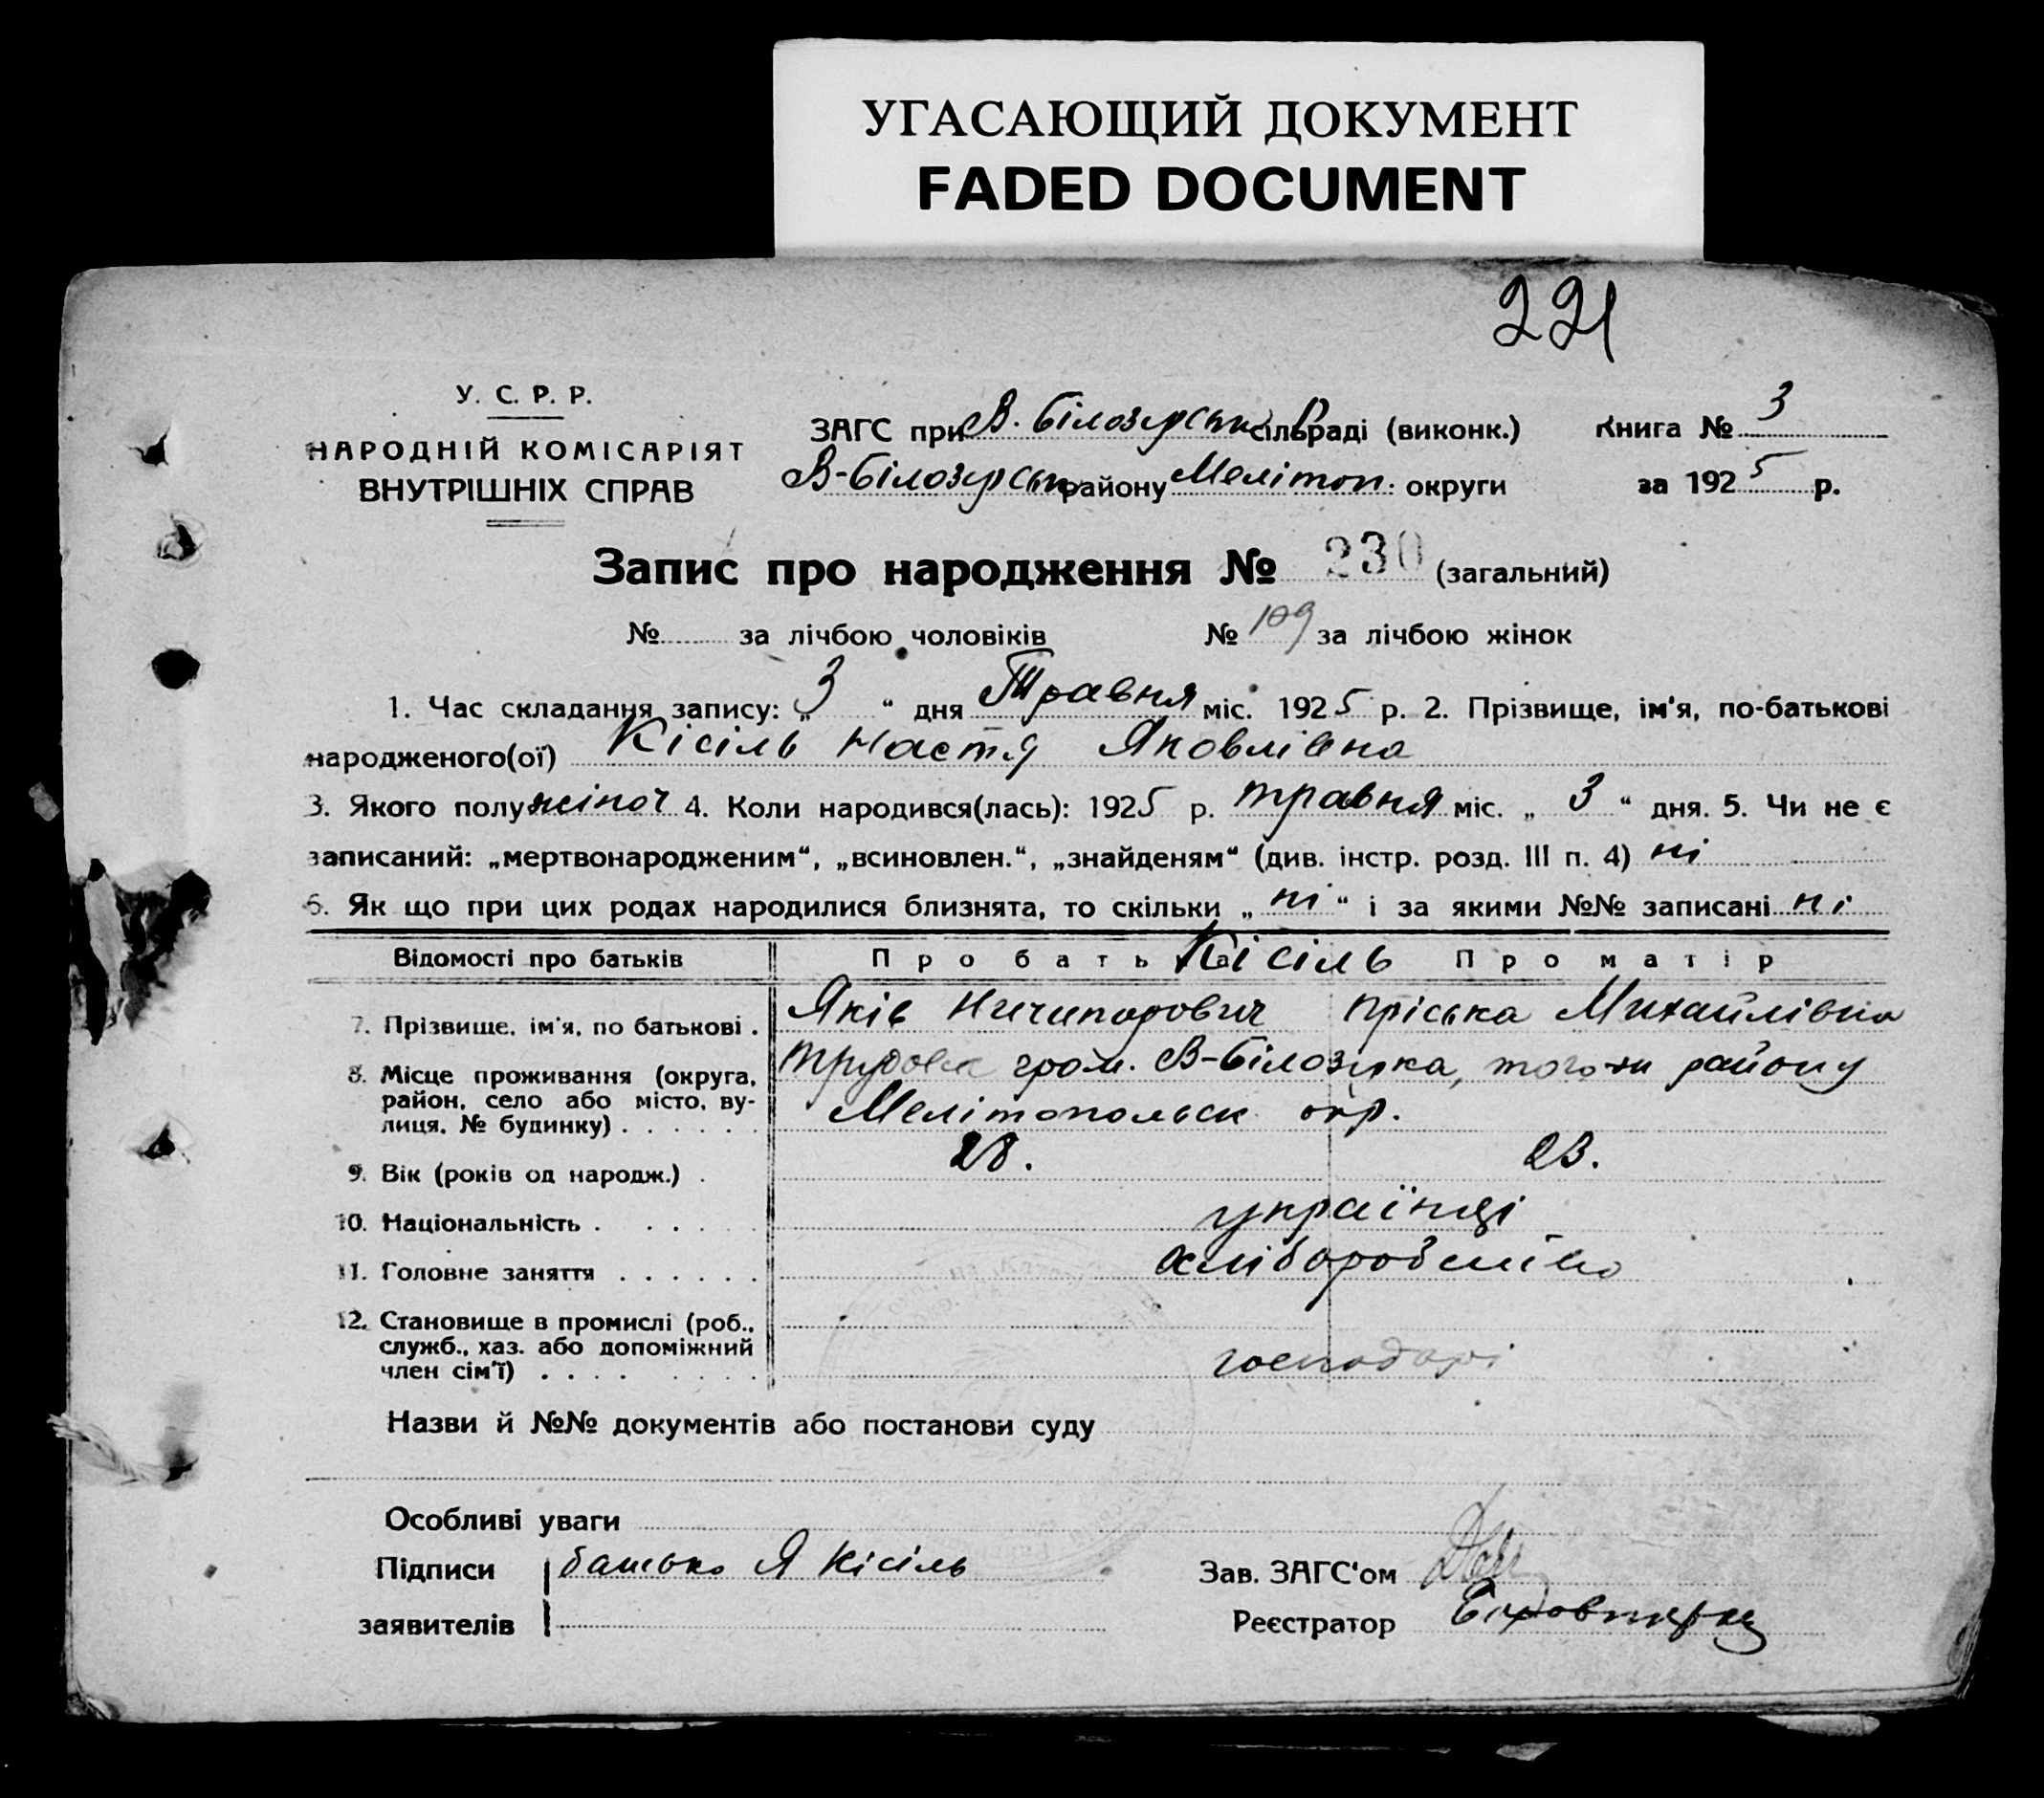 УГАСАЮЩИЙ ДОКУМЕНТ
FADED DOCUMENT
221
У. С. Р. Р.
НАРОДНІЙ КОМІСАРІЯТ
ВНУТРІШНІХ СПРАВ
ЗАГС при В. Білозерськ сільраді (виконк.) Книга № 3
В-Білозерськ району Мелітоп. округи за 1925 р.
Запис про народження № 230 (загальний)
№ за лічбою чоловіків № 109 за лічбою жінок
1. Час складання запису: „ 3 “ дня Травня міс. 1925 р. 2. Прізвище, ім'я, по-батькові
народженого(ої) Кісіль Настя Яковлівна
3. Якого полу жіноч 4. Коли народився(лась): 1925 р. травня міс. „ 3 “ дня. 5. Чи не є
записаний: „мертвонародженим“, „всиновлен.“, „знайденям“ (див. інстр. розд. III п. 4) ні
6. Як що при цих родах народилися близнята, то скільки „ ні “ і за якими №№ записані ні
Відомості про батьків Про батька Кісіль Про матір
7. Прізвище, ім'я, по батькові . Яків Ничипорович Пріська Михайлівна
8. Місце проживання (округа, район, село або місто, вулиця, № будинку) . . . . . . трудов гром. В-Білозірка, того-ж району
Мелітопольск окр.
9. Вік (років од народж.) . 28. 23.
10. Національність . . . . . українці
11. Головне заняття . . . . . . хліборобство
12. Становище в промислі (роб., служб., хаз. або допоміжний член сім'ї) . . . . господарі
Назви й №№ документів або постанови суду
Особливі уваги
Підписи батько Я Кісіль Зав. ЗАГС'ом
заявителів Реєстратор